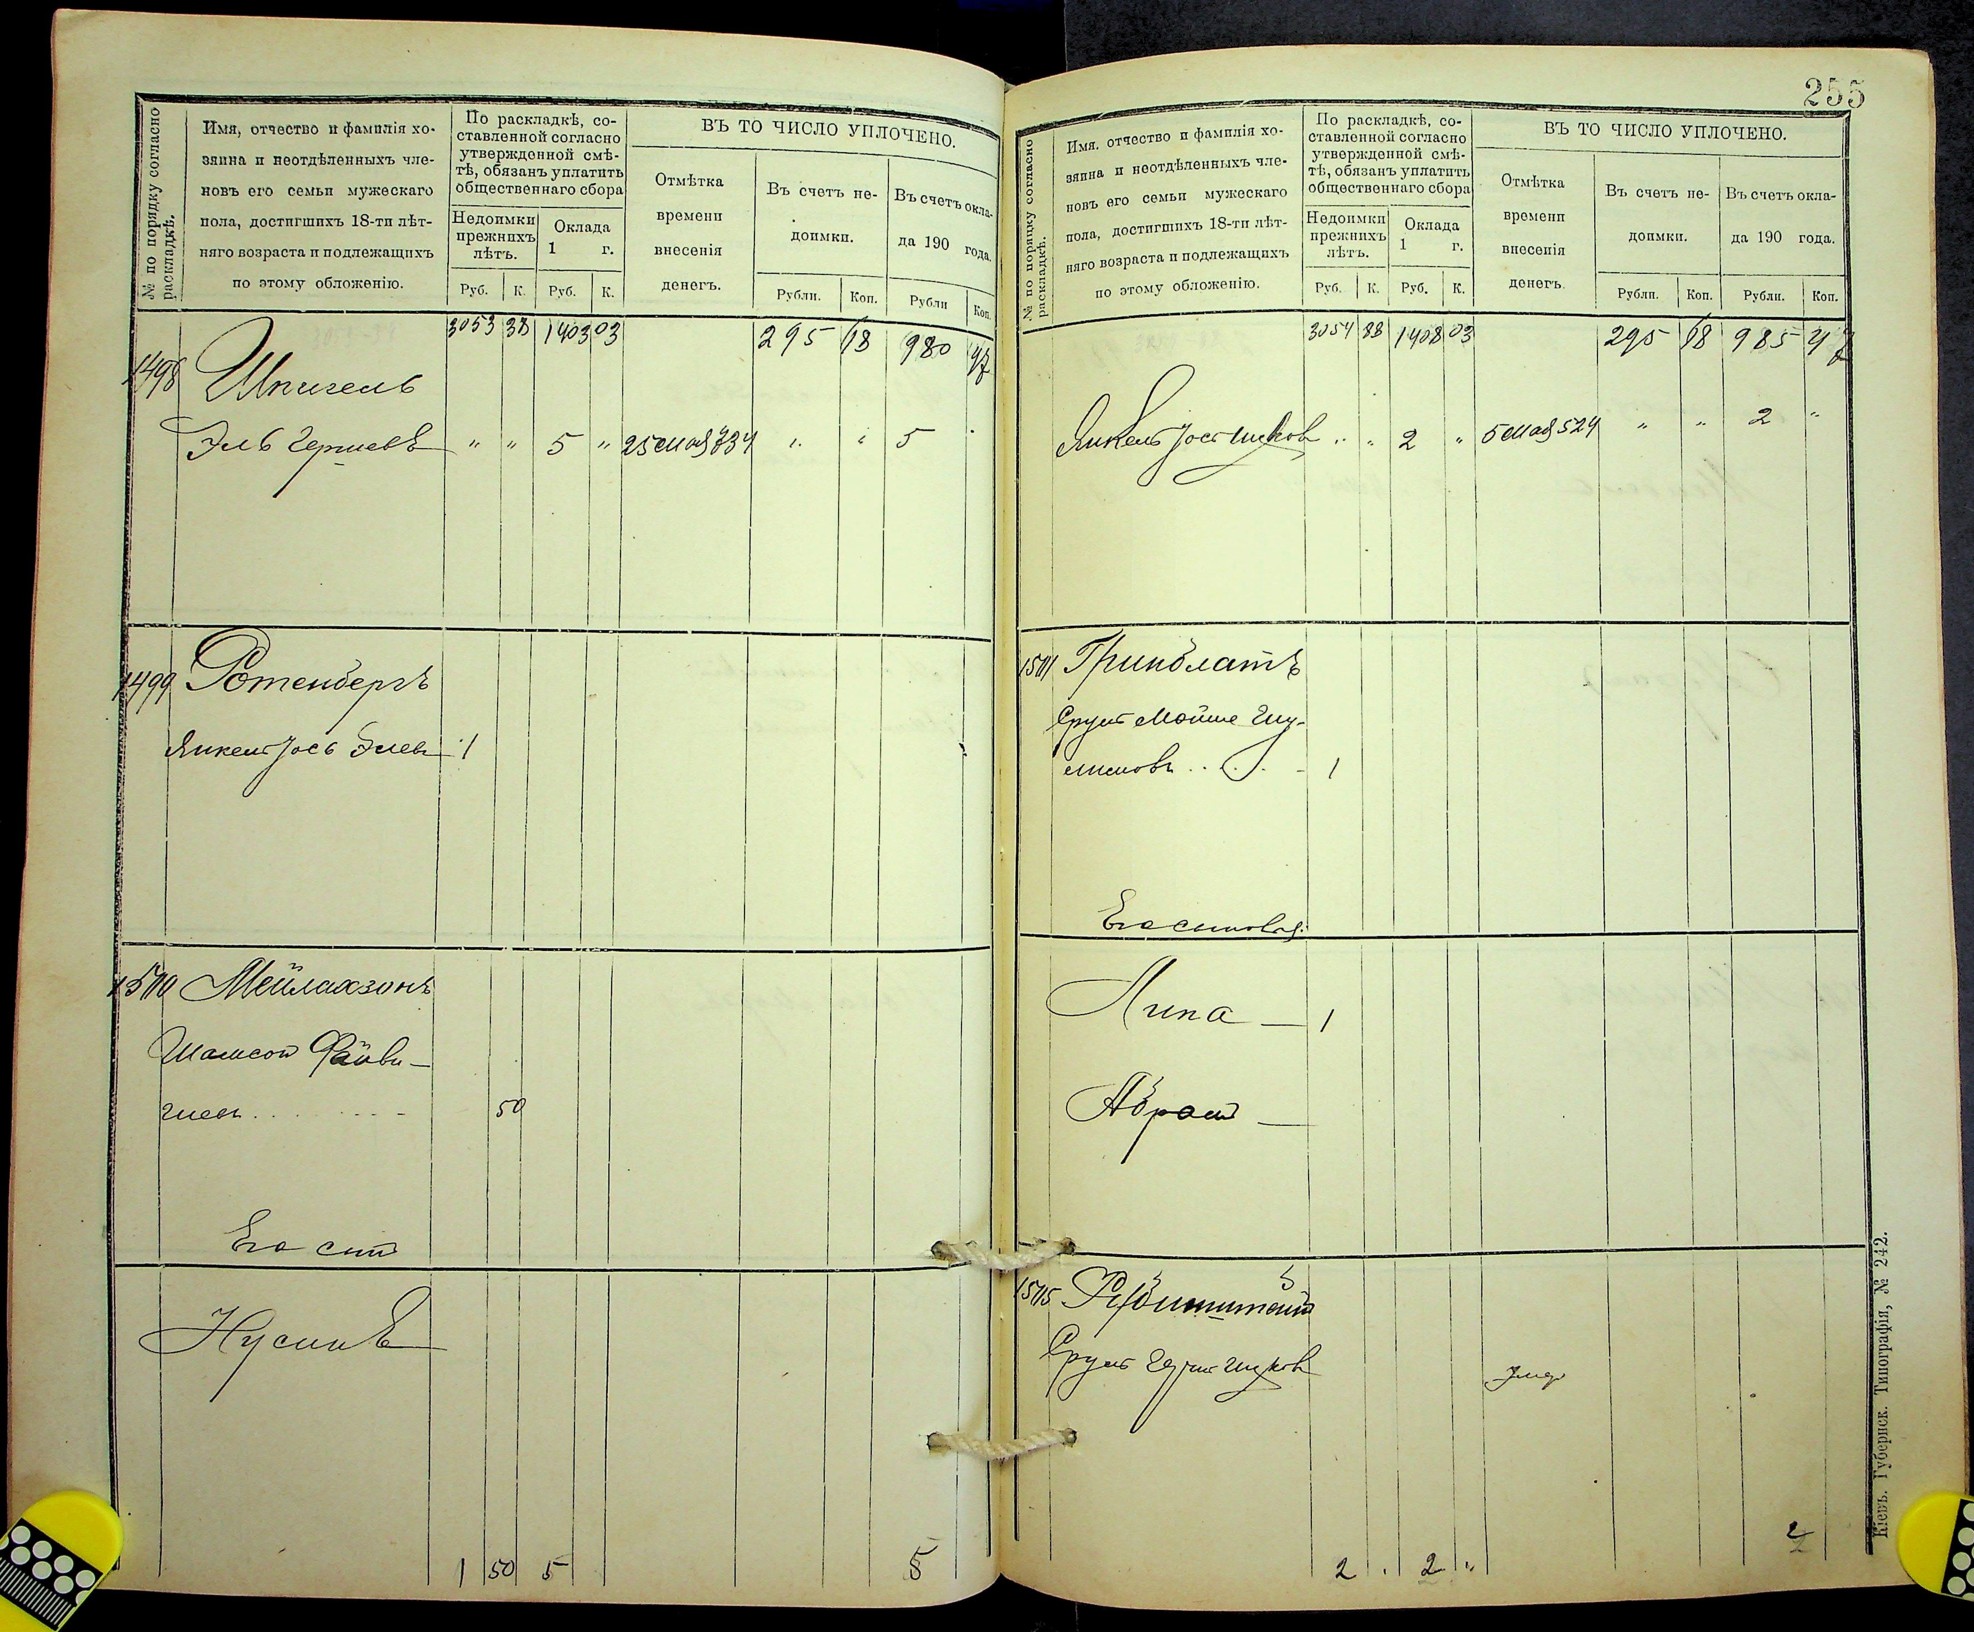 № по порядку согласно
раскладкѣ.
Имя, отчество и фамилія хо-
зяина и неотдѣленныхъ чле-
новъ его семьи мужескаго
пола, достигшихъ 18-ти лѣт-
няго возраста и подлежащихъ
по этому обложенію.
По раскладкѣ, со-
ставленной согласно
утвержденной смѣ-
тѣ, обязанъ уплатить
общественнаго сбора
Недоимки
прежнихъ
лѣтъ.
Оклада
1 г.
Руб. К. Руб. К.
ВЪ ТО ЧИСЛО УПЛОЧЕНО.
Отмѣтка
времени
внесенія
денегъ.
Въ счетъ не-
доимки.
Въ счетъ окла-
да 190 года.
Рубли. Коп. Рубли Коп.
3053 38 1403 03 295 18 980 47
1498 Шпигель
Эль Гершевъ " " 5 " 25 мая 734 " " 5
1499 Ротенбергъ
Янкель Йось Элев 1
1500 Мейлахзонъ
Шамсон Файви-
шев 50
Его сын
Нусинъ
1 50 5 5
255
№ по порядку согласно
раскладкѣ.
Имя, отчество и фамилія хо-
зяина и неотдѣленныхъ чле-
новъ его семьи мужескаго
пола, достигшихъ 18-ти лѣт-
няго возраста и подлежащихъ
по этому обложенію.
По раскладкѣ, со-
ставленной согласно
утвержденной смѣ-
тѣ, обязанъ уплатить
общественнаго сбора
Недоимки
прежнихъ
лѣтъ.
Оклада
1 г.
Руб. К. Руб. К.
ВЪ ТО ЧИСЛО УПЛОЧЕНО.
Отмѣтка
времени
внесенія
денегъ.
Въ счетъ не-
доимки.
Въ счетъ окла-
да 190 года.
Рубли. Коп. Рубли. Коп.
3054 88 1408 03 295 18 985 47
Янкель Йось Ицков " " 2 " 5 мая 529 " " 2 "
1501 Гринблатъ
Сруль Мойше Шу-
лимовъ 1
Его сыновья:
Липа — 1
Абрам —
1505 Рубинштейн
Сруль Ицков умер
2 2 " 2
Кіевъ. Губернск. Типографія, № 242.